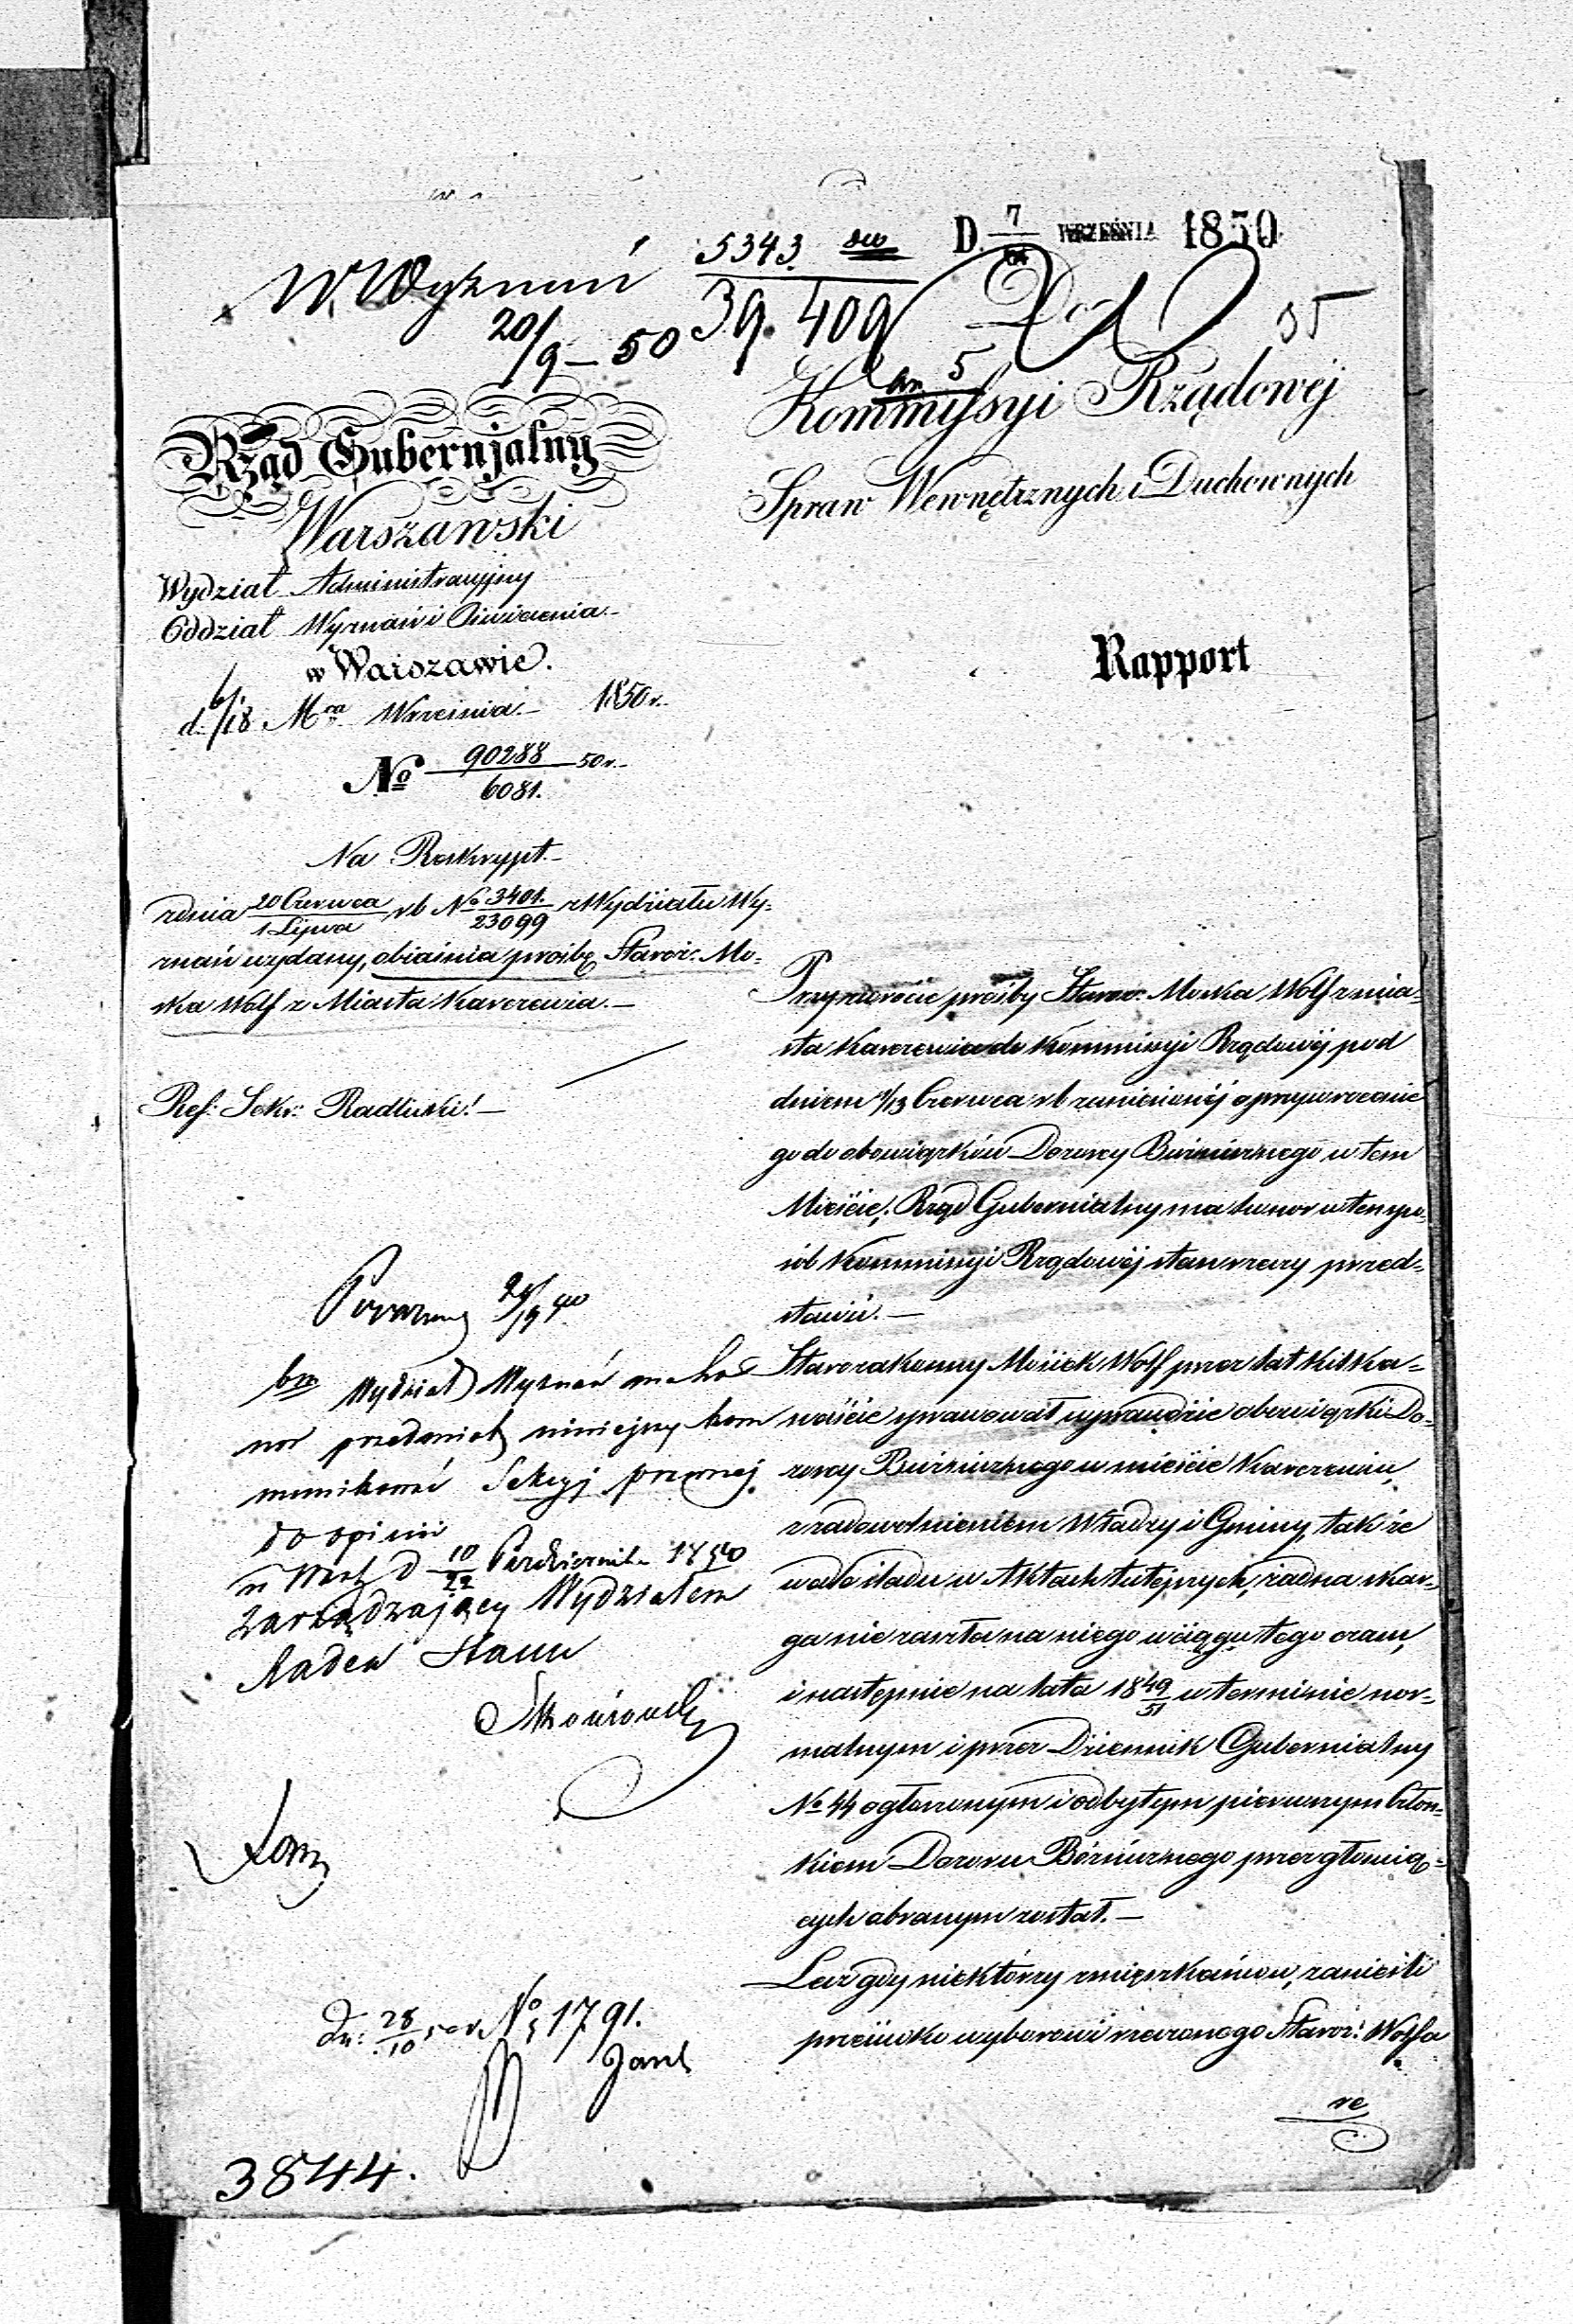 D. 7 WRZEŚNIA 1850
5343
39.409
W. Wyznań
20/9 – 50
Do
35
an. 5
Kommissyi Rządowej
Spraw Wewnętrznych i Duchownych
Rząd Gubernjalny
Warszawski
Wydział Administracyjny
Oddział Wyznań i Oświecenia.
w Warszawie.
d. 6/18 Mca Września. 1850 r.
No 90288 50 r.
6081.
Rapport
Na Reskrypt.
z dnia 20 Czerwca / 1 Lipca r b No 3401. / 23099 z Wydziału Wy-
znań wydany, obiaśnia prośbę Staroz: Mo-
ska Wolf z Miasta Kaczewia.
Ref: Sekr:
Przy zwrocie prośby Staroz: Moska Wolf z mia-
sta do Kommissyi Rządowéj pod
dniem 1/13 Czerwca r b zaniesionéj o przywrócenie
go do obowiązków Dozorcy Bużnicznego w tem
Mieście; Rząd Gubernialny ma honor w ten spo-
sób Kommissyi Rządowéj stan rzeczy przed-
stawić.
Starozakonny Mosiek Wolf przez lat kilka-
naście sprawował wprawdzie obowiązki Do-
zorcy Bużnicznego w mieście
z zadowolnieniem Władzy i Gminy, tak że
wedle śladu w Aktach tutéjszych, żadna skar-
ga nie zaszła na niego w ciągu tego czasu,
i następnie na lata 1849/51 w terminie nor-
malnym i przez Dziennik Gubernialny
No 44 ogłoszonym i odbytym pierwszym Człon-
kiem Dozoru Bóżnicznego przez głosują-
cych obranym został.
Lecz gdy niektórzy z mieszkańców, zanieśli
przeciwko wyborowi rzeczonego Staroz: Wolfa
re
Wydział Wyznań ma ho-
nor przedmiot niniejszy kom
munikować Sekcyj prawnej
do opinii
w Warsz d 10/22 Października 1850
Zarządzający Wydziałem
Radca Stanu
Dn: 28/10 No 1791.
3844.